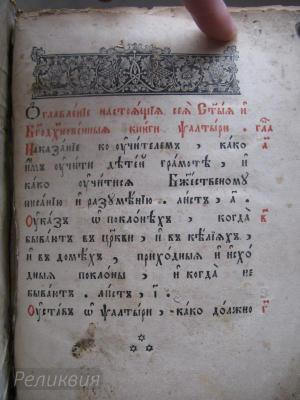 Ѡглавленїе настоѧщїѧ сеѧ ст҃ыѧ и҆
Бг҃одꙋхновенныѧ книги ѱалтыри · гла
Наказанїе ко оу҆чителемъ , како а҃
и҆мъ оу҆чити дѣтей грамотѣ , и҆
како оу҆читисѧ бж҃ественомꙋ
писанїю и҆ разꙋмѣнїю . листъ , а҃ .
Оу҆казъ ѡ҆ поклонѣхъ , когда в҃
бываютъ въ цр҃кви , и҆ въ келїѧхъ ,
и҆ въ домѣхъ , приходныѧ и҆ и҆схо
дныѧ поклоны , и҆ когда не
бываютъ . листъ , і҃ .
Оу҆ставъ ѡ҆ ѱалтыри , како должно г҃
Реликвия